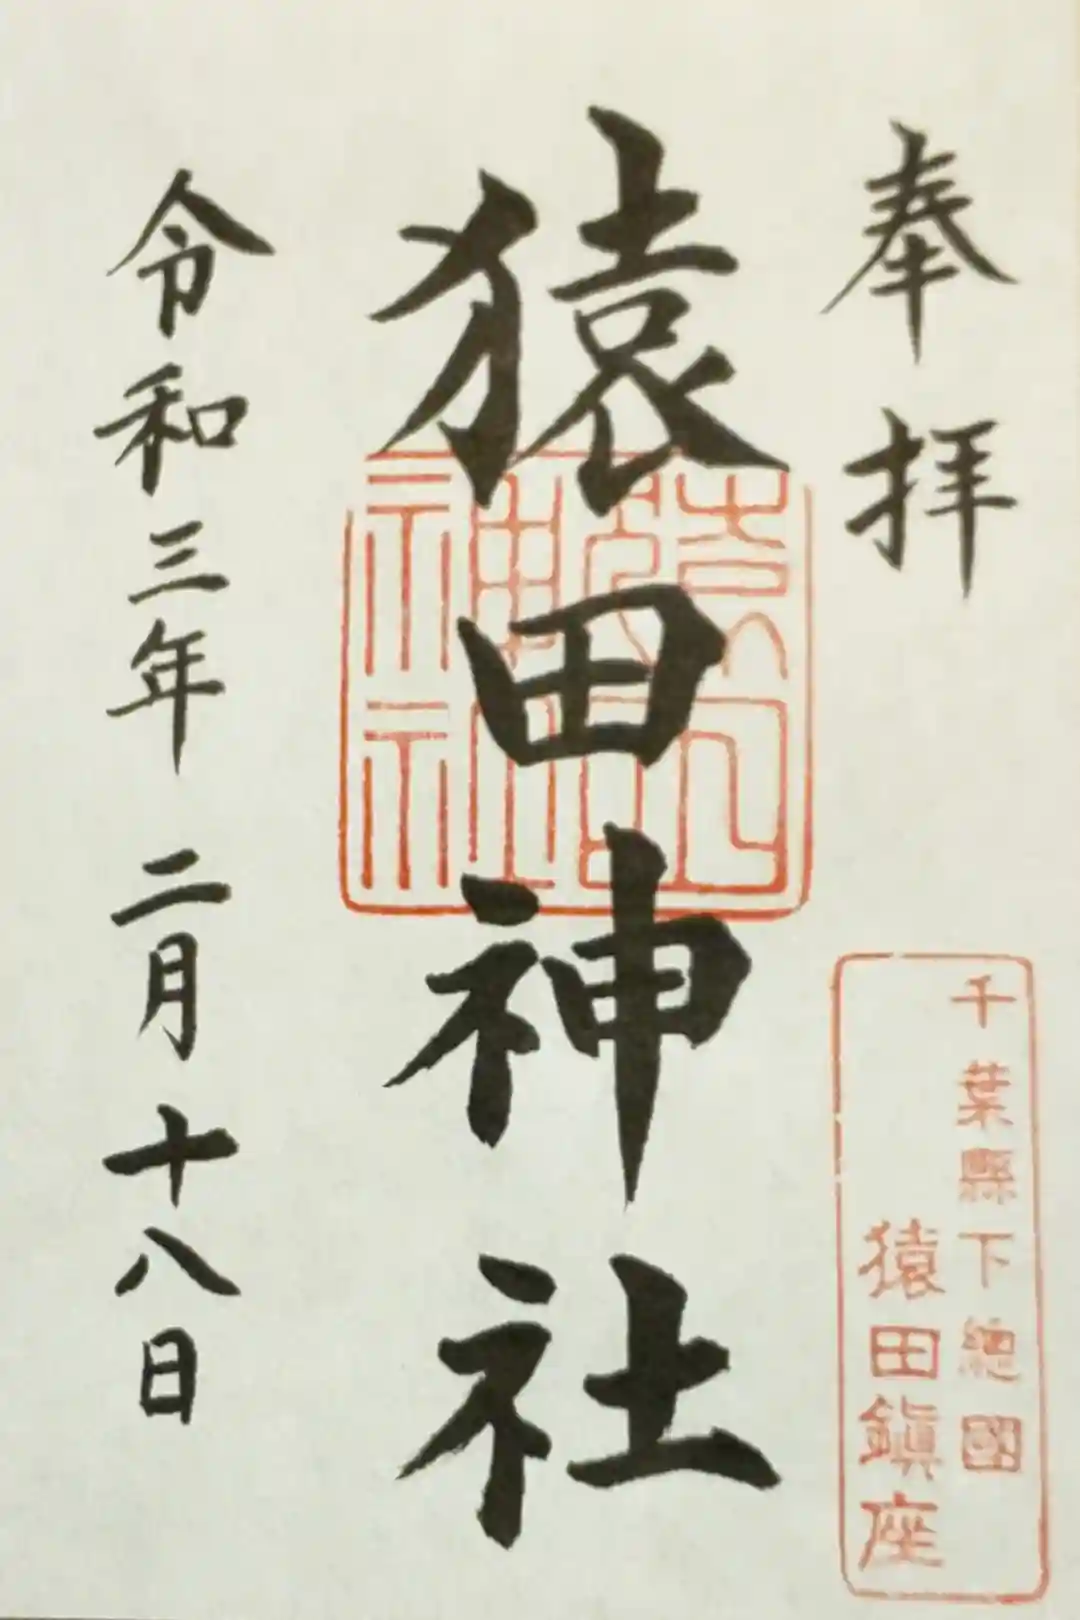 奉拝
千葉縣下總國
猿田鎮座
猿田神社
令和三年二月十八日